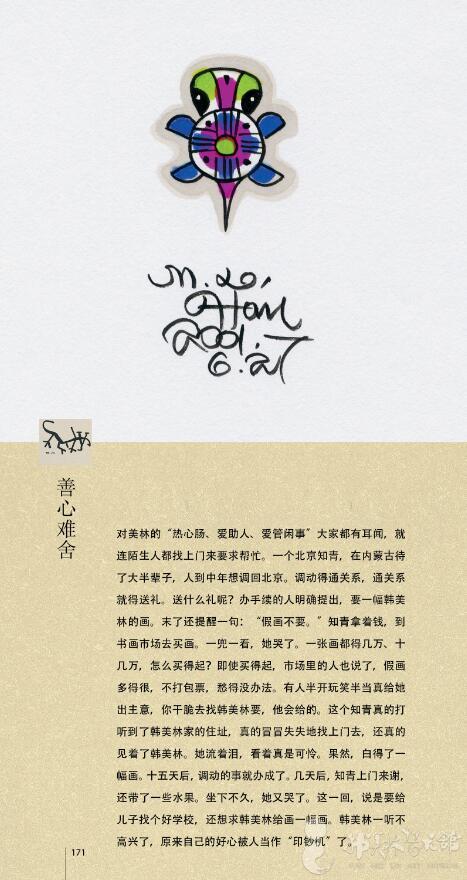 m. L.
Han
2001.
6.27
善心难舍
对美林的“热心肠、爱助人、爱管闲事”大家都有耳闻，就
连陌生人都找上门来要求帮忙。一个北京知青，在内蒙古待
了大半辈子，人到中年想调回北京。调动得通关系，通关系
就得送礼。送什么礼呢？办手续的人明确提出，要一幅韩美
林的画。末了还提醒一句：“假画不要。”知青拿着钱，到
书画市场去买画。一兜一看，她哭了。一张画都得几万、十
几万，怎么买得起？即使买得起，市场里的人也说了，假画
多得很，不打包票，愁得没办法。有人半开玩笑半当真给她
出主意，你干脆去找韩美林要，他会给的。这个知青真的打
听到了韩美林家的住址，真的冒冒失失地找上门去，还真的
见着了韩美林。她流着泪，看着真是可怜。果然，白得了一
幅画。十五天后，调动的事就办成了。几天后，知青上门来谢，
还带了一些水果。坐下不久，她又哭了。这一回，说是要给
儿子找个好学校，还想求韩美林给画一幅画。韩美林一听不
高兴了，原来自己的好心被人当作“印钞机”了。
171